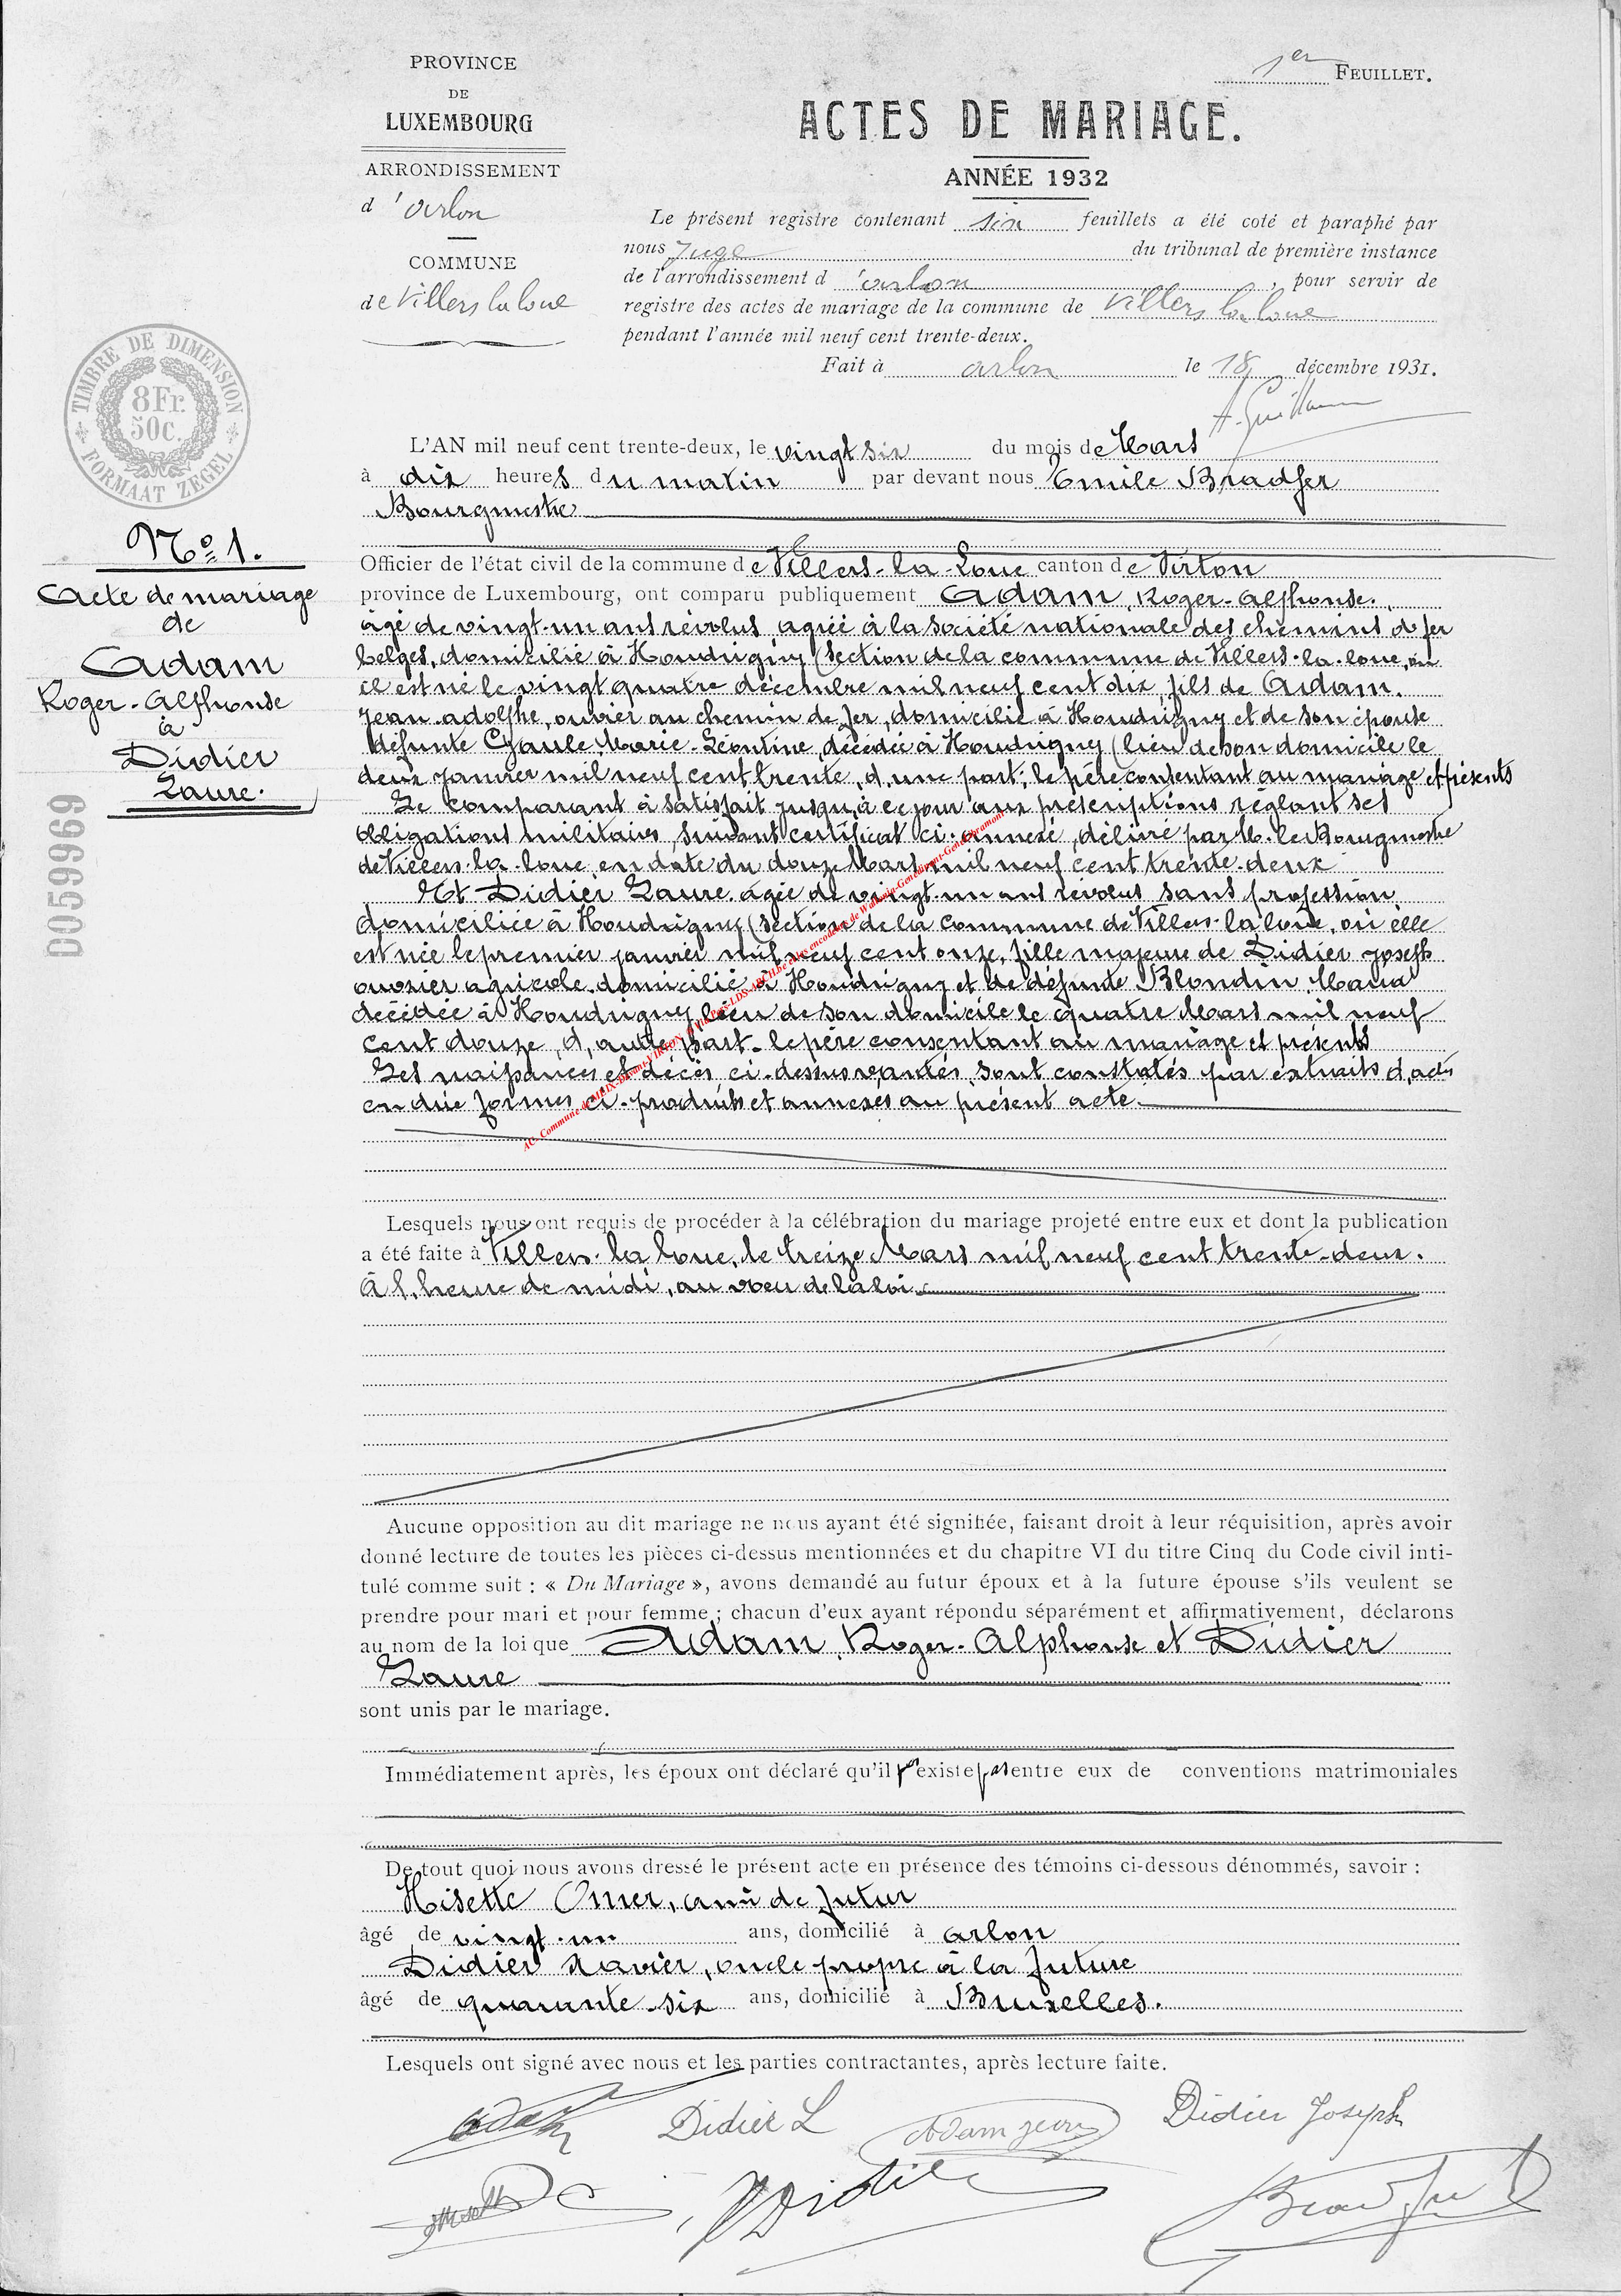 PROVINCE
DE
LUXEMBOURG
ARRONDISSEMENT
d'arlon
COMMUNE
de Villers la loue
1er FEUILLET.
ACTES DE MARIAGE.
ANNÉE 1932
Le présent registre contenant six feuillets a été coté et paraphé par
nous Juge du tribunal de première instance
de l'arrondissement d'arlon, pour servir de
registre des actes de mariage de la commune de Villers la loue
pendant l'année mil neuf cent trente-deux.
Fait à arlon le 18 décembre 1931.
TIMBRE DE DIMENSION
8Fr.
50c.
FORMAAT ZEGEL
L'AN mil neuf cent trente-deux, le vingt six du mois de Mars
à dix heures du matin par devant nous Emile Bradfer
Bourgmestre
N° 1.
Acte de mariage
de
Adam
Roger-Alphonse
à
Didier
Laure.
D0599969
Officier de l'état civil de la commune de Villers-la-Loue canton de Virton
province de Luxembourg, ont comparu publiquement Adam, Roger-Alphonse,
âgé de vingt-un ans révolus, agréé à la société nationale des chemins de fer
belges, domicilié à Houdrigny (section de la commune de Villers-la-loue, où
il est né le vingt quatre décembre mil neuf cent dix, fils de Adam,
Jean-adolphe, ouvrier au chemin de fer, domicilié à Houdrigny et de son épouse
défunte Marie-Léontine, décédée à Houdrigny (lieu de son domicile le
deux janvier mil neuf cent trente, d'une part; le père consentant au mariage et présents
Le comparant à satisfait jusqu'à ce jour aux prescriptions réglant ses
obligations militaires, suivant certificat ci-annexé, délivré par M. le Bourgmestre
de Villers-la-loue, en date du douze Mars mil neuf cent trente-deux
Et Didier Laure, âgée de vingt-un ans révolus sans profession,
domiciliée à Houdrigny (section de la commune de Villers-la loue, où elle
est née le premier janvier mil neuf cent onze, fille majeure de Didier Joseph
ouvrier agricole, domicilié à Houdrigny et de défunte Blondin, Maria
décédée à Houdrigny lieu de son domicile le quatre Mars mil neuf
cent douze, d'autre part. le père consentant au mariage et présents
Les naissances et décès ci-dessus vantés, sont constatés par extraits d'actes
en due formes ci-produits et annexés au présent acte.
Lesquels nous ont requis de procéder à la célébration du mariage projeté entre eux et dont la publication
a été faite à Villers-la loue, le treize Mars mil neuf cent trente-deux.
à l'heure de midi, au voeu de la loi.
Aucune opposition au dit mariage ne nous ayant été signifiée, faisant droit à leur réquisition, après avoir
donné lecture de toutes les pièces ci-dessus mentionnées et du chapitre VI du titre Cinq du Code civil inti-
tulé comme suit : « Du Mariage », avons demandé au futur époux et à la future épouse s'ils veulent se
prendre pour mari et pour femme ; chacun d'eux ayant répondu séparément et affirmativement, déclarons
au nom de la loi que Adam, Roger-Alphonse et Didier
Laure
sont unis par le mariage.
Immédiatement après, les époux ont déclaré qu'il n'existe pas entre eux de conventions matrimoniales
De tout quoi nous avons dressé le présent acte en présence des témoins ci-dessous dénommés, savoir :
Omer, ami de futur
âgé de vingt-un ans, domicilié à Arlon
Didier Xavier, oncle propre à la future
âgé de quarante-six ans, domicilié à Bruxelles.
Lesquels ont signé avec nous et les parties contractantes, après lecture faite.
Didier L
Adam Jean
Didier Joseph